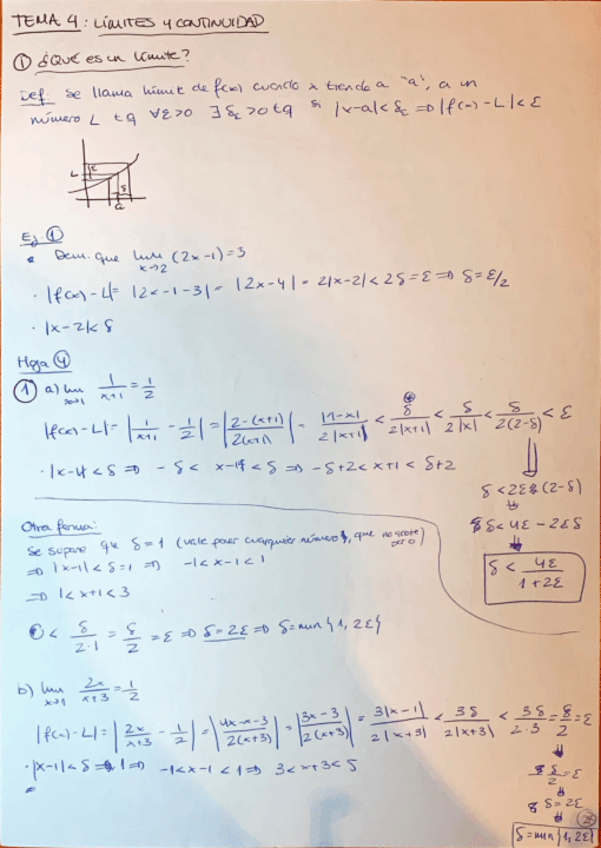 TEMA 4: LÍMITES Y CONTINUIDAD
① ¿QUÉ ES UN LÍMITE?
Def: Se llama límit de f(x) cuando x tiende a "a", a un
número L tq ∀ε>0 ∃δε>0 tq si |x-a|<δε ⇒ |f(x)-L|<ε
L ε
δ
a
Ej ①
Dem. que lim x→2 (2x-1)=3
· |f(x)-L|= |2x-1-3|= |2x-4|= 2|x-2|<2δ=ε ⇒ δ=ε/2
· |x-2|<δ
Hoja ④
① a) lim x→1 1/(x+1) = 1/2
|f(x)-L|= |1/(x+1) - 1/2| = |(2-(x+1))/(2(x+1))| = |1-x|/(2|x+1|) < δ/(2|x+1|) < δ/(2|x|) < δ/(2(2-δ)) < ε
· |x-1|<δ ⇒ -δ < x-1 < δ ⇒ -δ+2<x+1<δ+2
δ<2ε(2-δ)
δ<4ε-2εδ
δ < 4ε/(1+2ε)
Otra forma:
Se supone que δ=1 (vale para cualquier número, que no sea cero)
⇒ |x-1|<δ=1 ⇒ -1<x-1<1
⇒ 1<x+1<3
< δ/(2·1) = δ/2 = ε ⇒ δ=2ε ⇒ δ=min{1,2ε}
b) lim x→1 2x/(x+3) = 1/2
|f(x)-L|= |2x/(x+3) - 1/2| = |(4x-x-3)/(2(x+3))| = |(3x-3)/(2(x+3))| = 3|x-1|/(2|x+3|) < 3δ/(2|x+3|) < 3δ/(2·3) = δ/2 = ε
· |x-1|<δ 1 ⇒ -1<x-1<1 ⇒ 3<x+3<5
δ/2=ε
δ=2ε
δ=min{1,2ε}